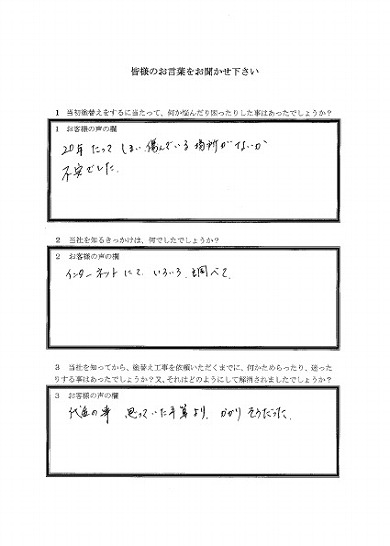 皆様のお言葉をお聞かせ下さい
1 当初塗替えをするに当たって、何か悩んだり困ったりした事はあったでしょうか?
1 お客様の声の欄
20年たってしまい傷んでいる場所がないか
不安でした。
2 当社を知るきっかけは、何でしたでしょうか?
2 お客様の声の欄
インターネットにて いろいろ 調べて、
3 当社を知ってから、塗替え工事を依頼いただくまでに、何かためらったり、迷った
りする事はあったでしょうか?又、それはどのようにして解消されましたでしょうか?
3 お客様の声の欄
代金の事 思っていた予算より、かかりそうだった。